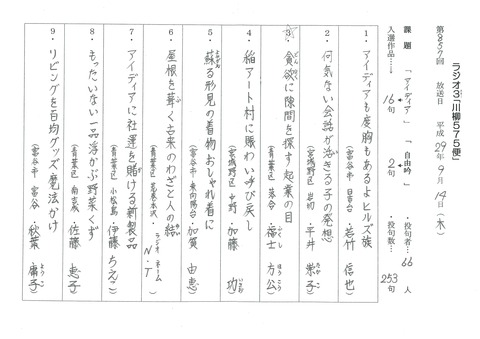 ラジオ3「川柳575便」
第857回 放送日 平成29年9月14日(木)
課題 「アイディア」 「自由吟」 投句者…66人
入選作品… 16句 2句 投句数…253句
1・アイディアも度胸もあるよヒルズ族
(富谷市・日吉台)・若竹 信也
2・何気ない会話が活きる子の発想
(宮城野区・岩切)・平井 崇子
3・貪欲に隙間を探す起業の目
(青葉区・落合)・福士 方公
4・稲アート村に賑わい呼び戻し
(宮城野区・中野)・加藤 功
5・蘇る形見の着物おしゃれ着に
(富谷市・東向陽台)・加賀 由恵
6・屋根を葺く古来のわざと人の結
(青葉区・荒巻本沢)・ラジオネーム N・T
7・アイディアに社運を賭ける新製品
(青葉区・小松島)・伊藤 ちえこ
8・もったいない一品浮かぶ野菜くず
(青葉区・南吉成)・佐藤 恵子
9・リビングを百均グッズ魔法かけ
(富谷市・富谷)・秋葉 庸子